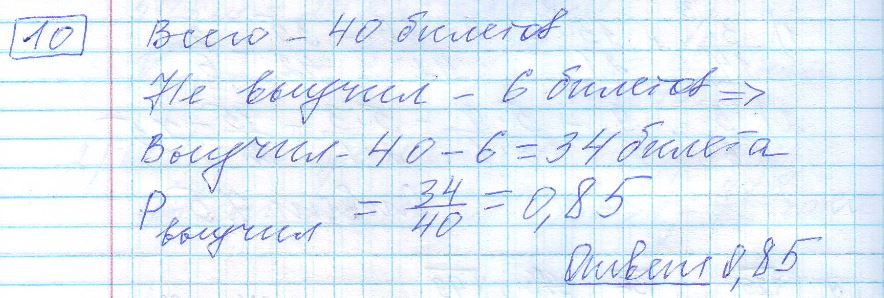 10 Всего - 40 билетов
Не выучил - 6 билетов =>
Выучил - 40 - 6 = 34 билета
P выучил = 34/40 = 0,85
Ответ 0,85